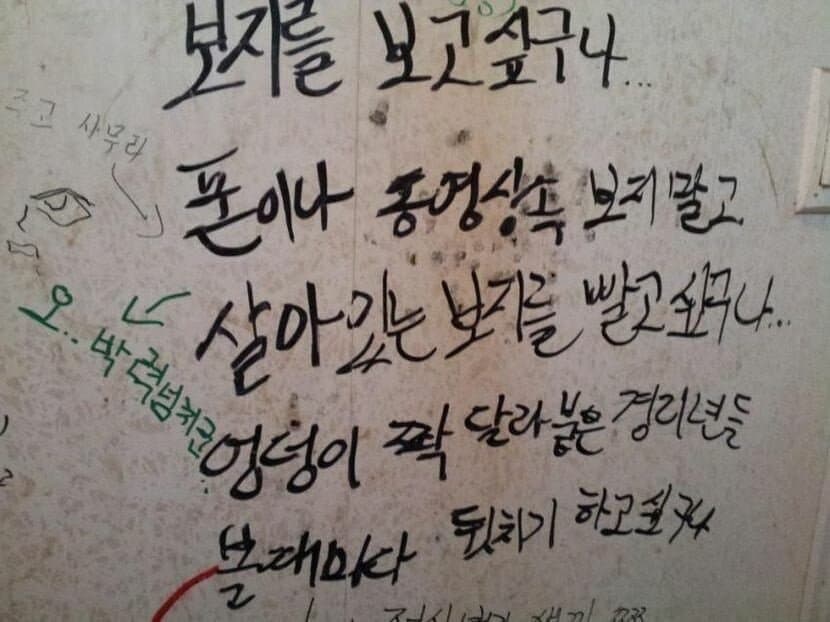 보지를 보고 싶구나...
주고 사무라
폰이나 동영상속 보지 말고
살아 있는 보지를 빨고 싶구나...
오.. 박력넘치군..
엉덩이 짝 달라붙은 경리년들
볼때마다 뒷치기 하고싶구나